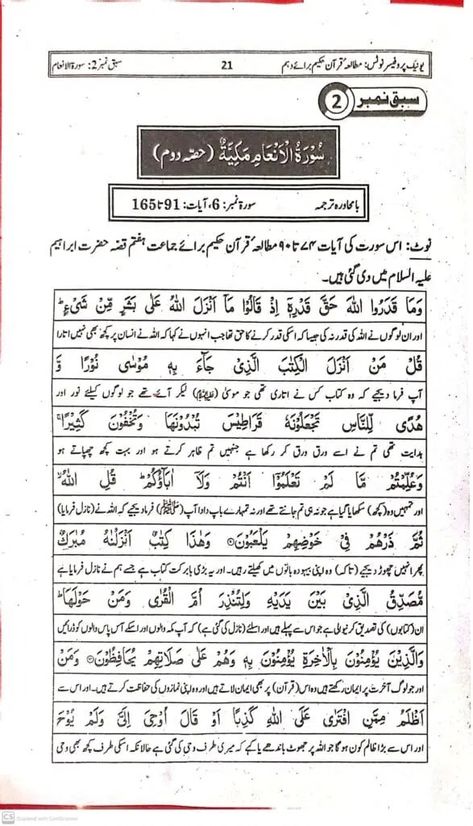 یونیک پروفیسر نوٹس: مطالعہ قرآن حکیم برائے دہم
21
سبق نمبر2: سورۃ الانعام
سبق نمبر 2
سُوْرَةُ الْاَنْعَامِ مَكِّيَّةٌ (حصّہ دوم)
بامحاورہ ترجمہ سورۃ نمبر: 6، آیات: 91 تا 165
نوٹ: اس سورت کی آیات ۷۴ تا ۹۰ مطالعہ قرآن حکیم برائے جماعت ہفتم قصّہ حضرت ابراہیم
علیہ السلام میں دی گئی ہیں۔
وَمَا قَدَرُوا اللّٰهَ حَقَّ قَدْرِهٖٓ اِذْ قَالُوْا مَآ اَنْزَلَ اللّٰهُ عَلٰى بَشَرٍ مِّنْ شَیْءٍ ؕ
اور ان لوگوں نے اللہ کی قدر نہ کی جیسا کہ اسکی قدر کرنے کا حق تھا جب انہوں نے کہا کہ اللہ نے انسان پر کچھ بھی نہیں اتارا
قُلْ مَنْ اَنْزَلَ الْكِتٰبَ الَّذِیْ جَآءَ بِهٖ مُوْسٰى نُوْرًا وَّ
آپ فرما دیجیے کہ وہ کتاب کس نے اتاری تھی جو موسیٰ (علیہ السلام) لیکر آئے تھے جو لوگوں کیلئے نور اور
هُدًى لِّلنَّاسِ تَجْعَلُوْنَهٗ قَرَاطِیْسَ تُبْدُوْنَهَا وَتُخْفُوْنَ كَثِیْرًا ۚ
ہدایت تھی تم نے اسے ورق ورق کر رکھا ہے جنہیں تم ظاہر کرتے ہو اور بہت کچھ چھپاتے ہو
وَعُلِّمْتُمْ مَّا لَمْ تَعْلَمُوْٓا اَنْتُمْ وَلَآ اٰبَآؤُكُمْ ؕ قُلِ اللّٰهُ ۙ
اور تمہیں وہ (کچھ) سکھایا گیا ہے جو نہ ہی تم جانتے تھے اور نہ تمہارے باپ دادا آپ (ﷺ) فرما دیجیے کہ اللہ نے (نازل فرمایا)
ثُمَّ ذَرْهُمْ فِیْ خَوْضِهِمْ یَلْعَبُوْنَ۝ وَهٰذَا كِتٰبٌ اَنْزَلْنٰهُ مُبٰرَكٌ
پھر انہیں چھوڑ دیجیے (تاکہ) وہ اپنی بیہودہ باتوں میں کھیلتے رہیں۔ اور یہ بڑی بابرکت کتاب ہے جسے ہم نے نازل فرمایا ہے
مُّصَدِّقُ الَّذِیْ بَیْنَ یَدَیْهِ وَلِتُنْذِرَ اُمَّ الْقُرٰى وَمَنْ حَوْلَهَا ؕ
ان (کتابوں) کی تصدیق کرنیوالی ہے جو اس سے پہلے ہیں اور اسلئے (نازل کی گئی ہے) کہ آپ مکہ والوں اور اسکے آس پاس والوں کو ڈرائیں
وَالَّذِیْنَ یُؤْمِنُوْنَ بِالْاٰخِرَةِ یُؤْمِنُوْنَ بِهٖ وَهُمْ عَلٰى صَلَاتِهِمْ یُحَافِظُوْنَ۝ وَمَنْ
اور جو لوگ آخرت پر ایمان رکھتے ہیں وہ اس (قرآن) پر بھی ایمان لاتے ہیں اور وہ اپنی نمازوں کی حفاظت کرتے ہیں۔ اور اس سے
اَظْلَمُ مِمَّنِ افْتَرٰى عَلَى اللّٰهِ كَذِبًا اَوْ قَالَ اُوْحِیَ اِلَیَّ وَلَمْ یُوْحَ
اور اس سے بڑا ظالم کون ہوگا جو اللہ پر جھوٹ باندھے یا کہے کہ میری طرف وحی کی گئی ہے حالانکہ اسکی طرف کچھ بھی وحی
CS Scanned with CamScanner